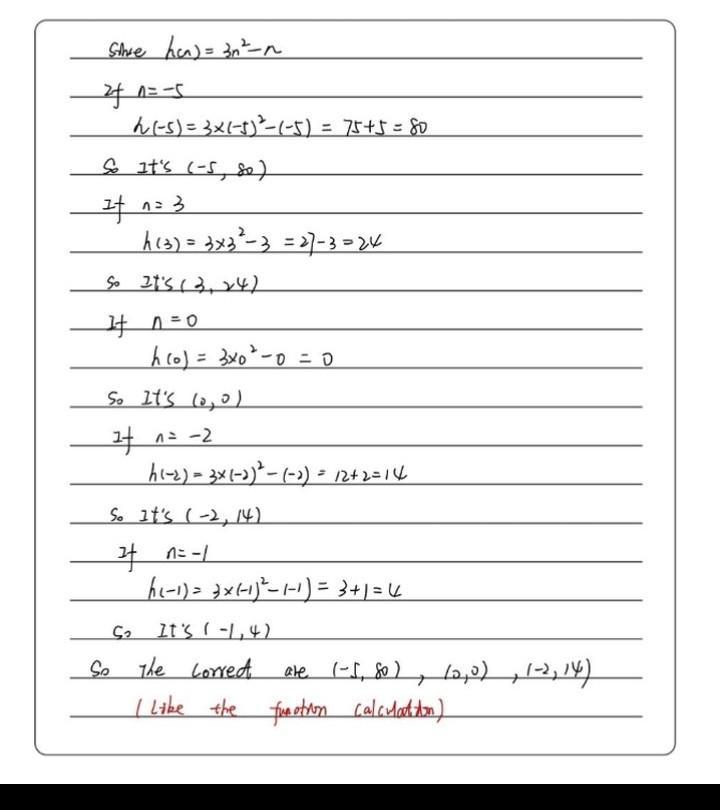 Since h(n) = 3n²-n
If n = -5
h(-5) = 3×(-5)²-(-5) = 75+5 = 80
So It's (-5, 80)
If n = 3
h(3) = 3×3²-3 = 27-3 = 24
So It's (3, 24)
If n = 0
h(0) = 3×0²-0 = 0
So It's (0, 0)
If n = -2
h(-2) = 3×(-2)²-(-2) = 12+2 = 14
So It's (-2, 14)
If n = -1
h(-1) = 3×(-1)²-(-1) = 3+1 = 4
So It's (-1, 4)
So The correct are (-5, 80), (0,0), (-2, 14)
(Like the function calculation)